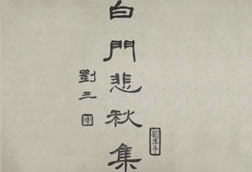 白門悲秋集
劉三